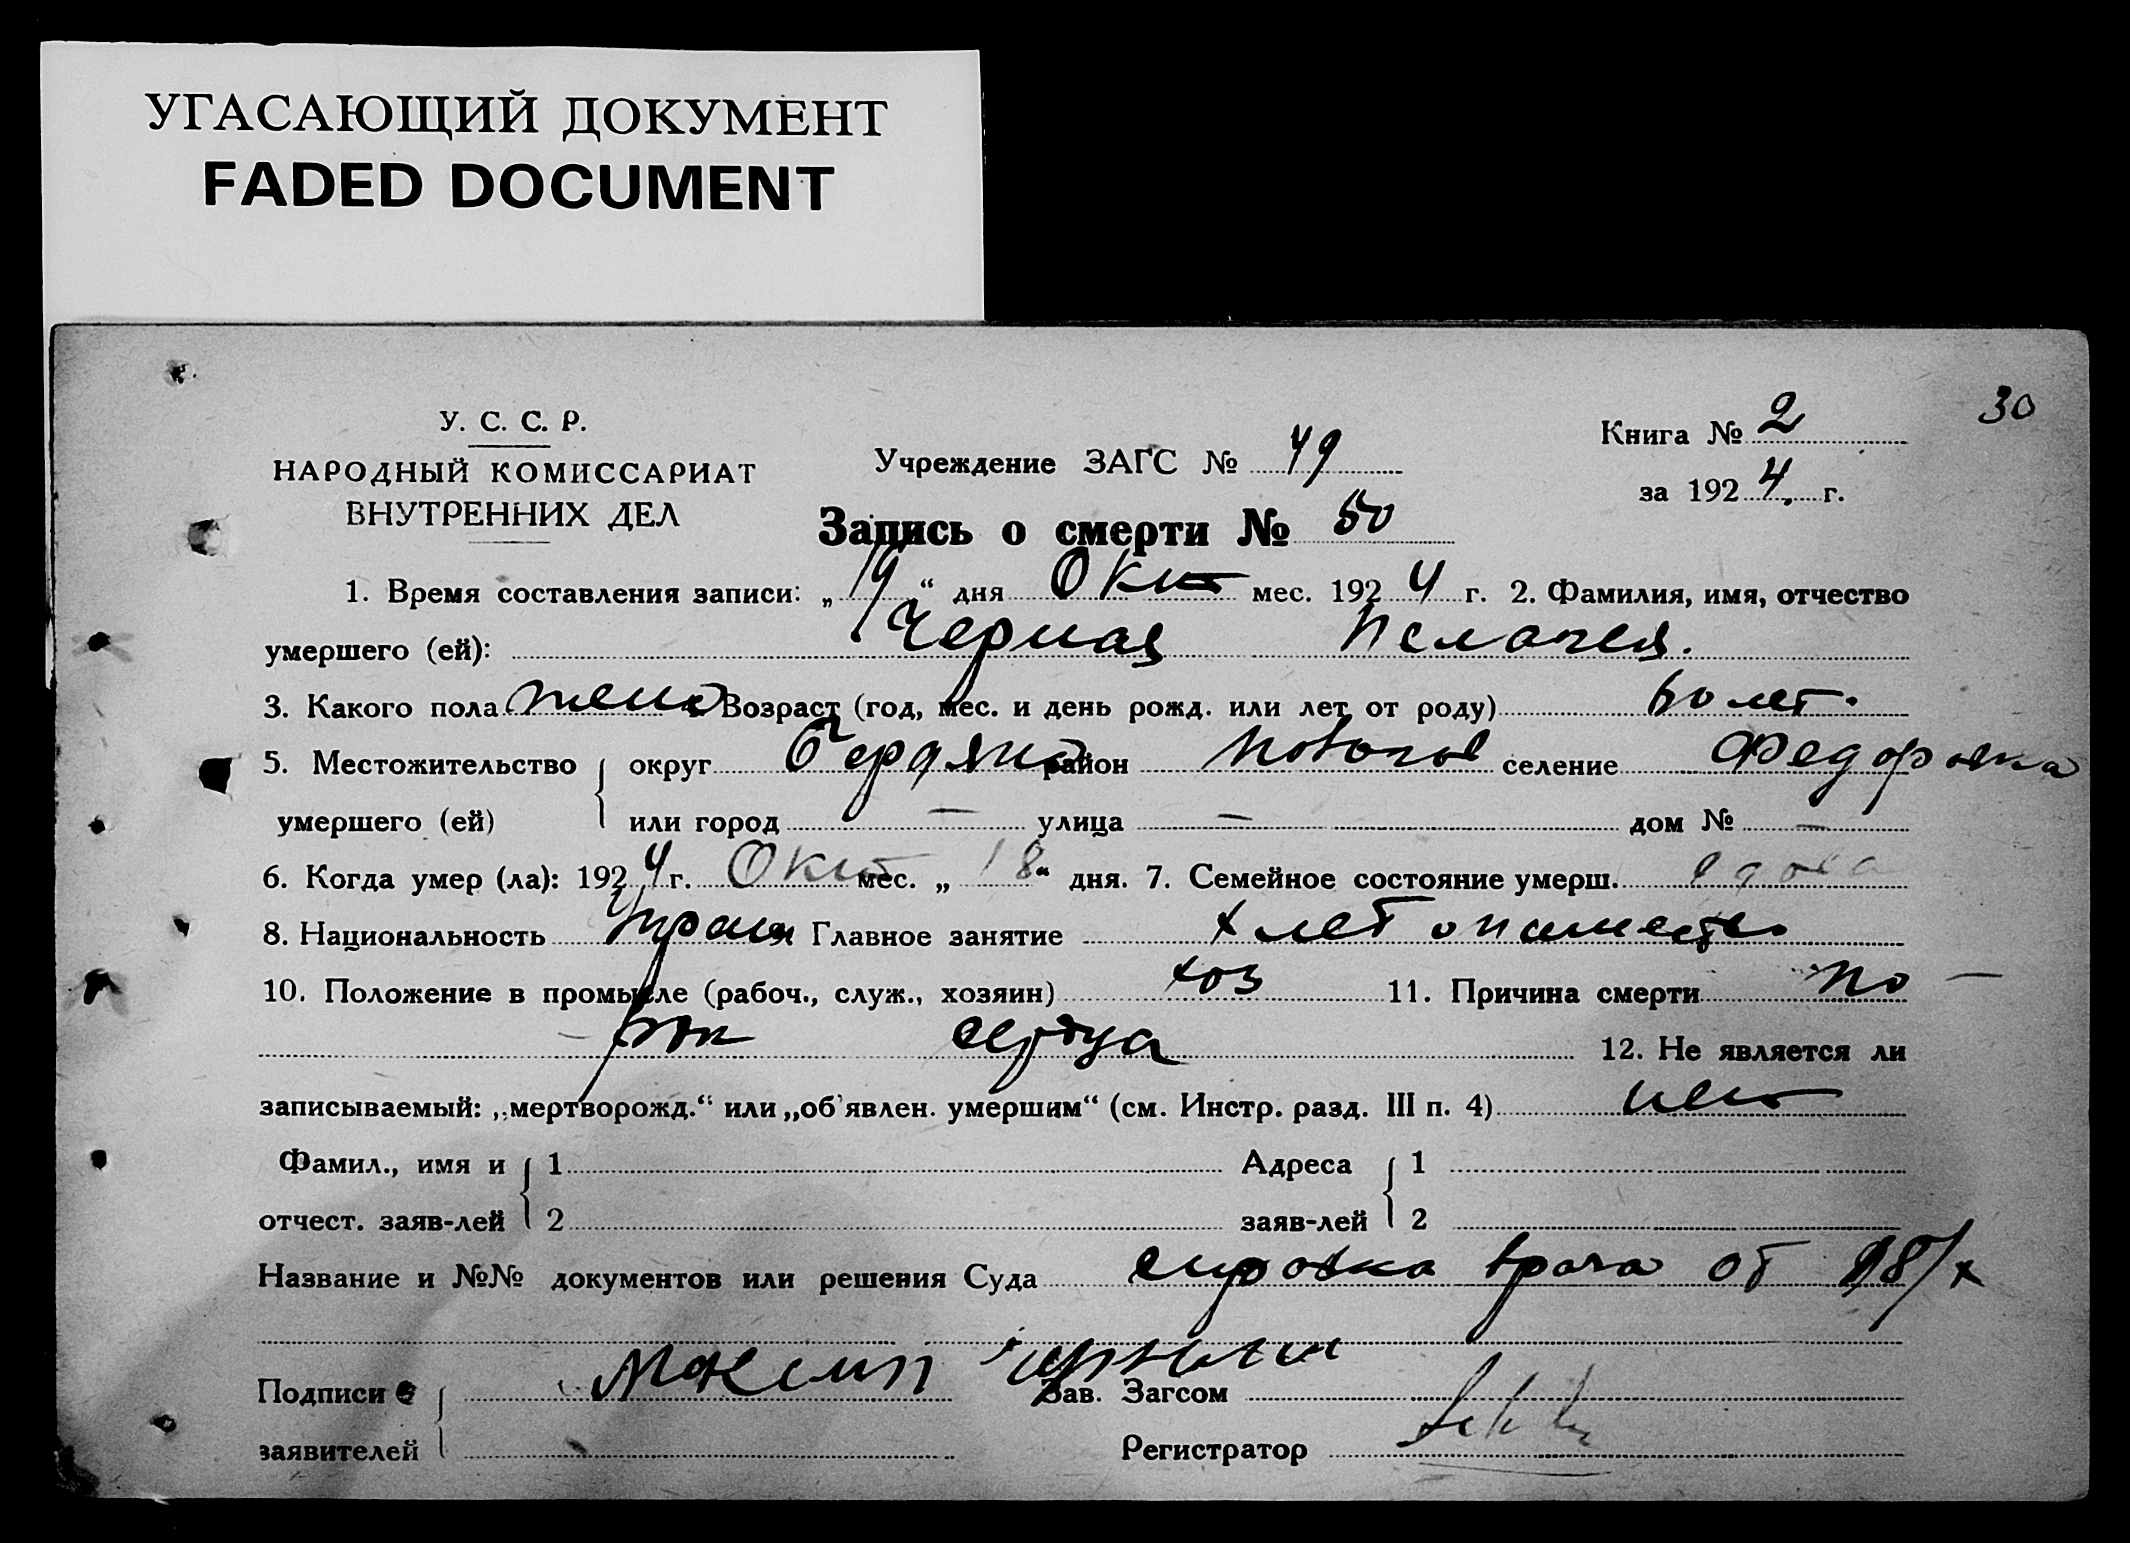 УГАСАЮЩИЙ ДОКУМЕНТ
FADED DOCUMENT
30
У. С. С. Р.
НАРОДНЫЙ КОМИССАРИАТ
ВНУТРЕННИХ ДЕЛ
Учреждение ЗАГС № 49
Книга № 2
за 1924 г.
Запись о смерти № 50
1. Время составления записи: „19“ дня Окт мес. 1924 г. 2. Фамилия, имя, отчество
умершего (ей): Черная Пелагея.
3. Какого пола жено Возраст (год, мес. и день рожд. или лет от роду) 60 лет.
5. Местожительство округ Бердянс район селение Федоровка
умершего (ей) или город — улица — дом № —
6. Когда умер (ла): 1924 г. Окт мес. „18“ дня. 7. Семейное состояние умерш. вдова
8. Национальность Украин Главное занятие хлебопашество
10. Положение в промысле (рабоч., служ., хозяин) хоз 11. Причина смерти по-
-рок сердца 12. Не является ли
записываемый: „мертворожд.“ или „об'явлен. умершим“ (см. Инстр. разд. III п. 4) нет
Фамил., имя и 1 Адреса 1
отчест. заяв-лей 2 заяв-лей 2
Название и №№ документов или решения Суда справка врача от 18/х
Подписи Максим Черный Зав. Загсом
заявителей Регистратор